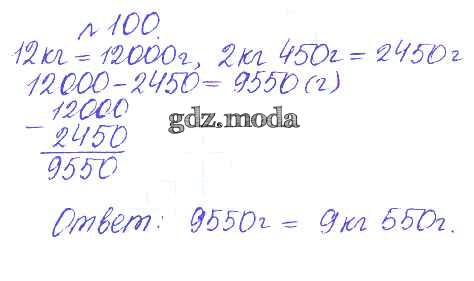 № 100.
12кг = 12000г, 2кг 450г = 2450г
12000 - 2450 = 9550 (г)
12000
- 2450
9550
gdz.moda
Ответ: 9550г = 9кг 550г.